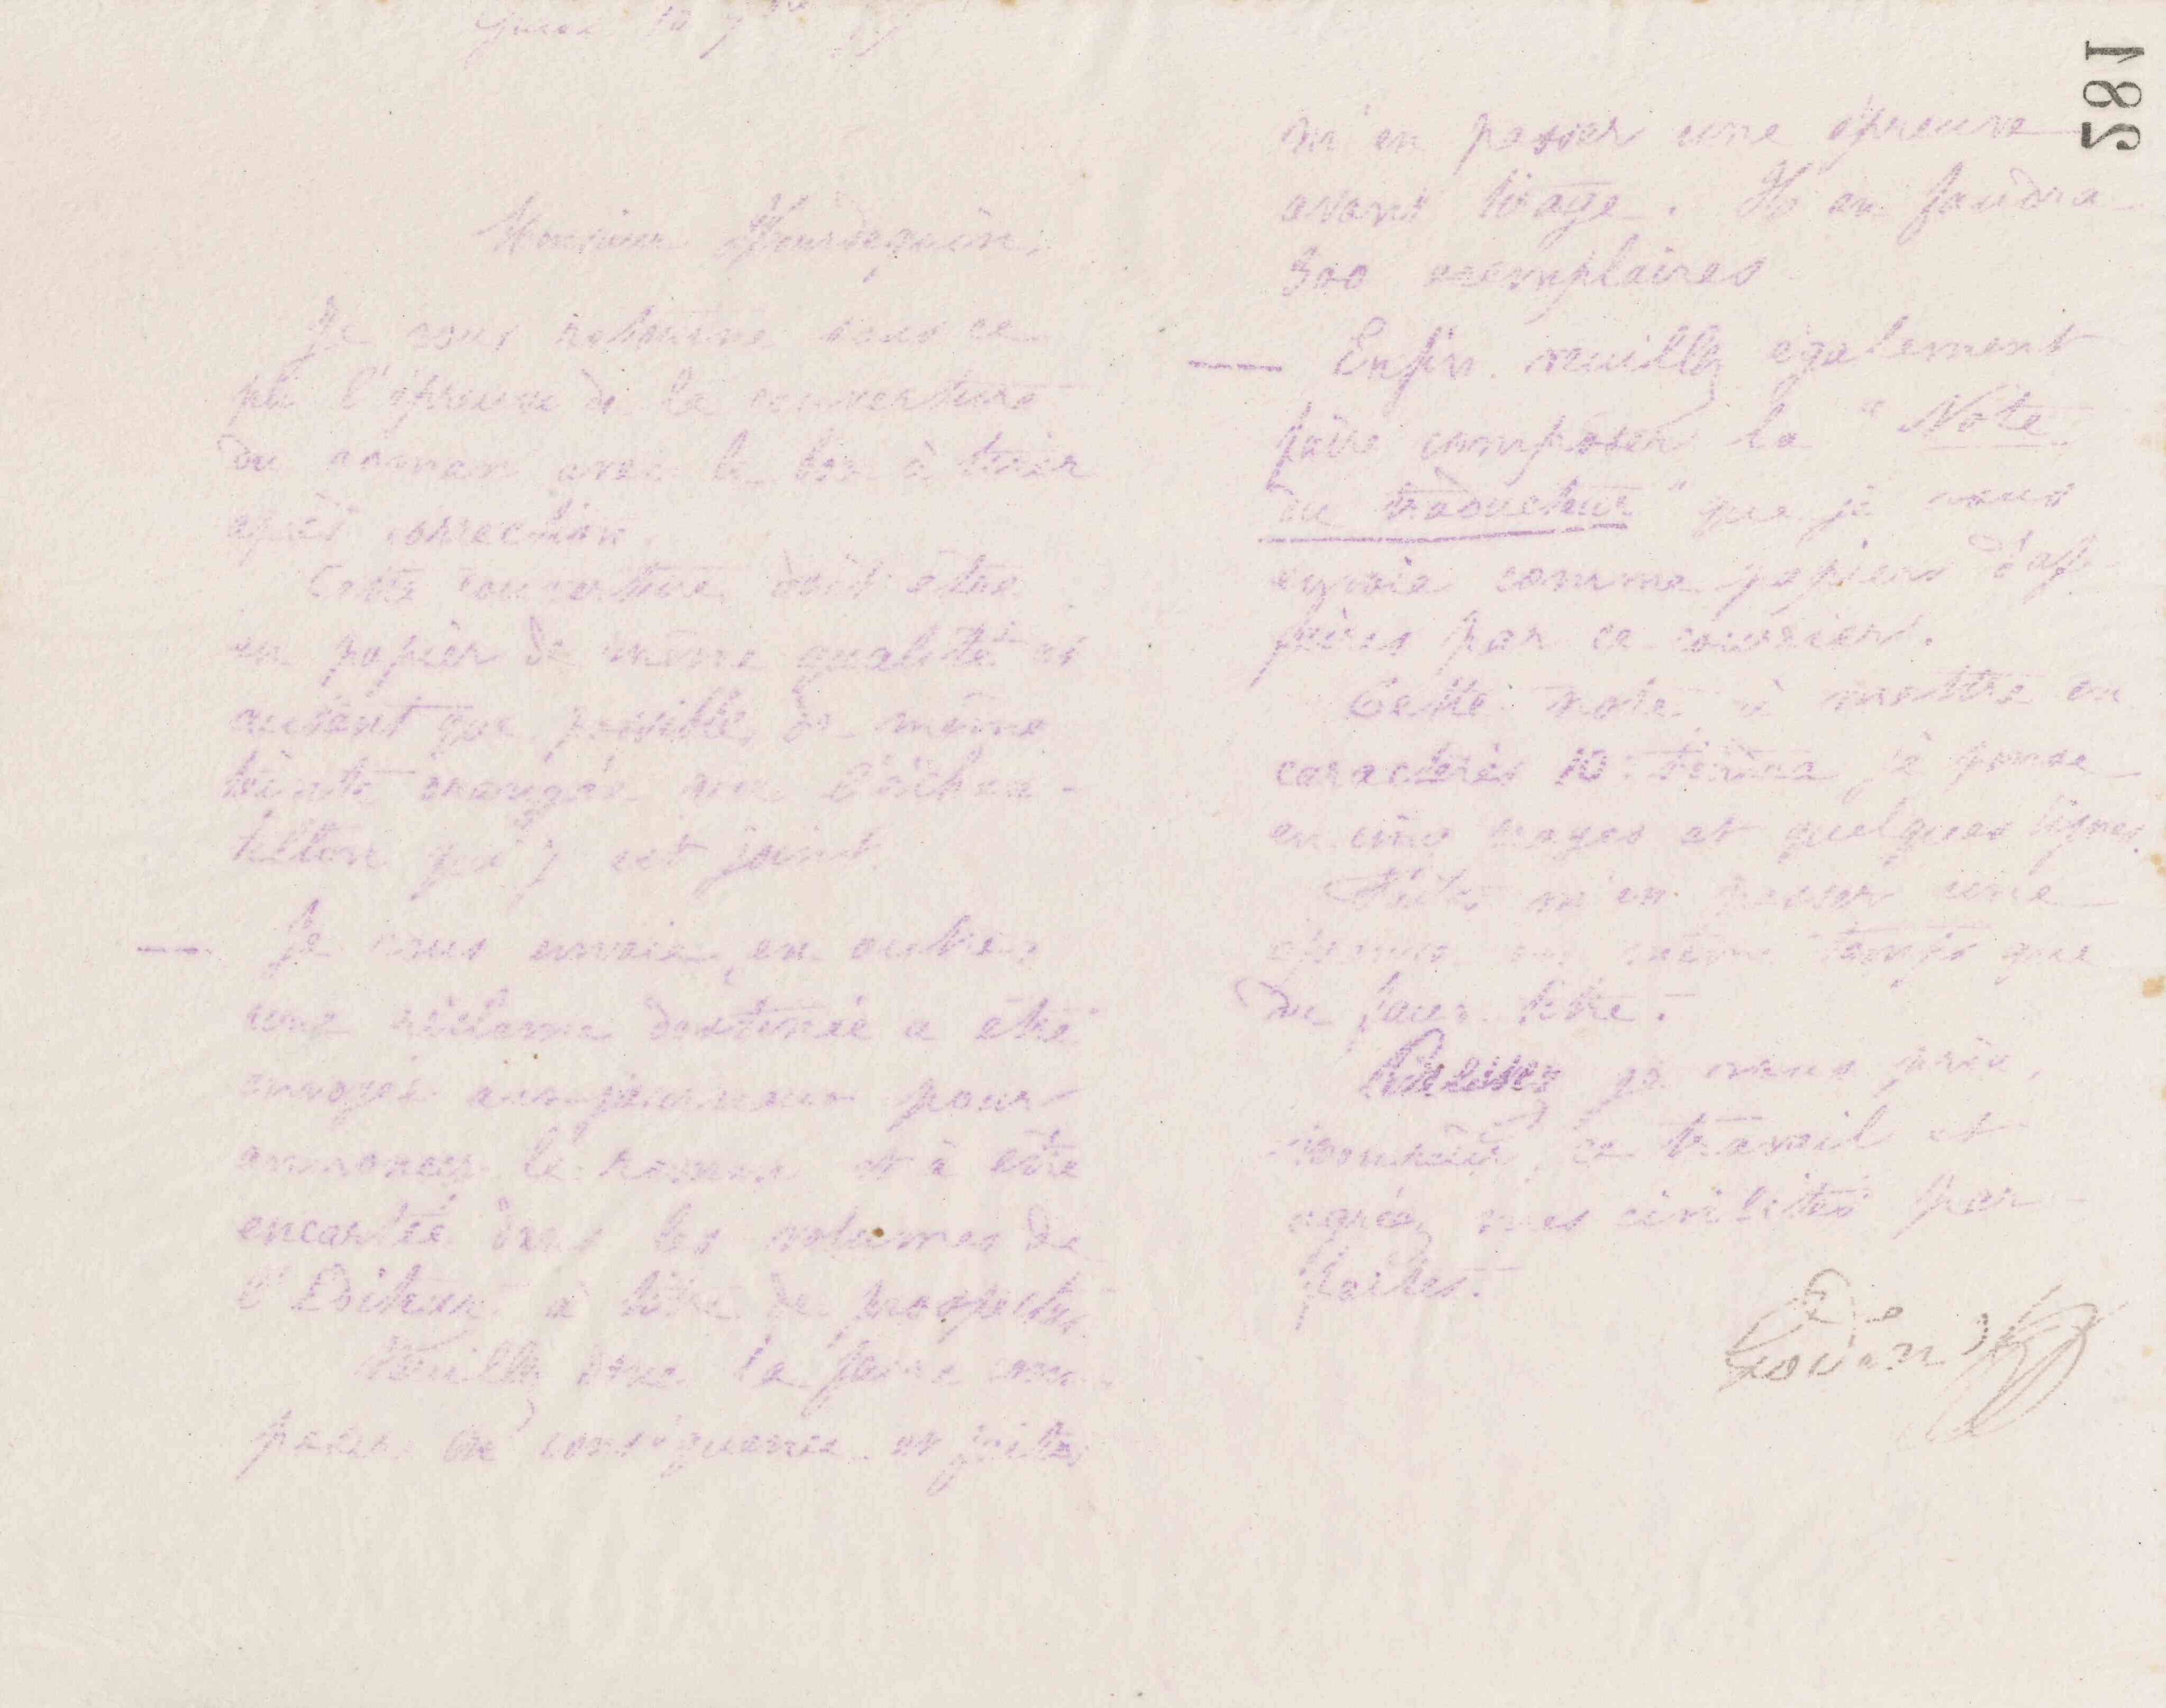 Guise 10 7bre
Monsieur Hourdequin,
Je vous retourne sous ce
pli l'épreuve de la couverture
du roman avec le bon à tirer
après correction.
Cette couverture doit être
en papier de même qualité et
autant que possible, de même
teinte orangée que l'échan-
tillon qui y est joint.
— Je vous envoie, en outre,
une réclame destinée a être
envoyée aux journaux pour
annoncer le roman et à être
encartée dans les volumes de
l'Editeur à titre de prospectus
Veuillez donc la faire com-
poser en conséquence et faites
182
m'en passer une épreuve
avant tirage. Il en faudra
300 exemplaires
— Enfin veuillez également
faire composer la "Note
du traducteur" que je vous
envoie comme papiers d'af-
faires par ce courrier.
Cette note à mettre en
caractères 10 je pense
en cinq pages et quelques lignes.
Faites m'en passer une
épreuve en même temps que
du faux titre.
Pressez je vous prie,
Monsieur, ce travail et
agréez mes civilités par-
faites.
Godin